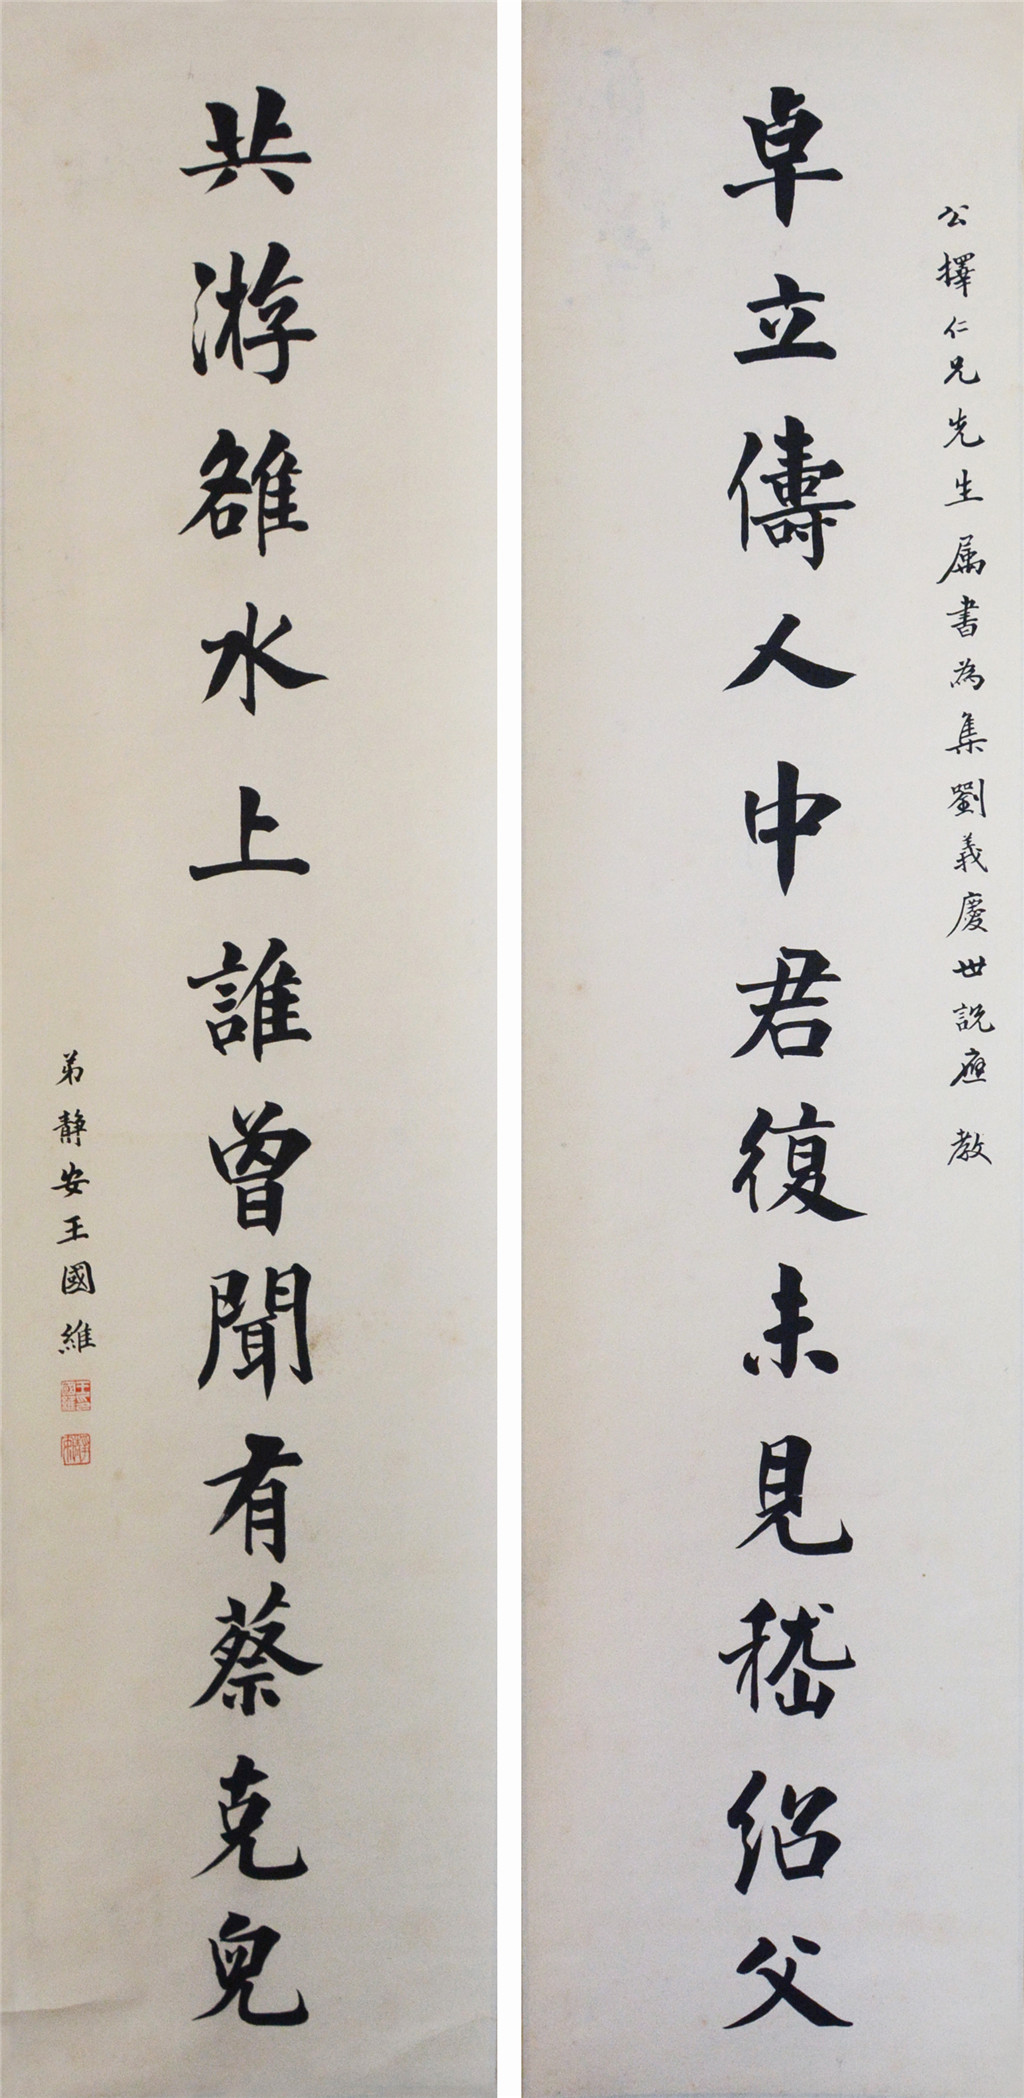 公擇仁兄先生属書為集劉義慶世說應教
卓立儔人中君復未見嵇紹父
共游雒水上誰曾聞有蔡克兒
弟静安王國維